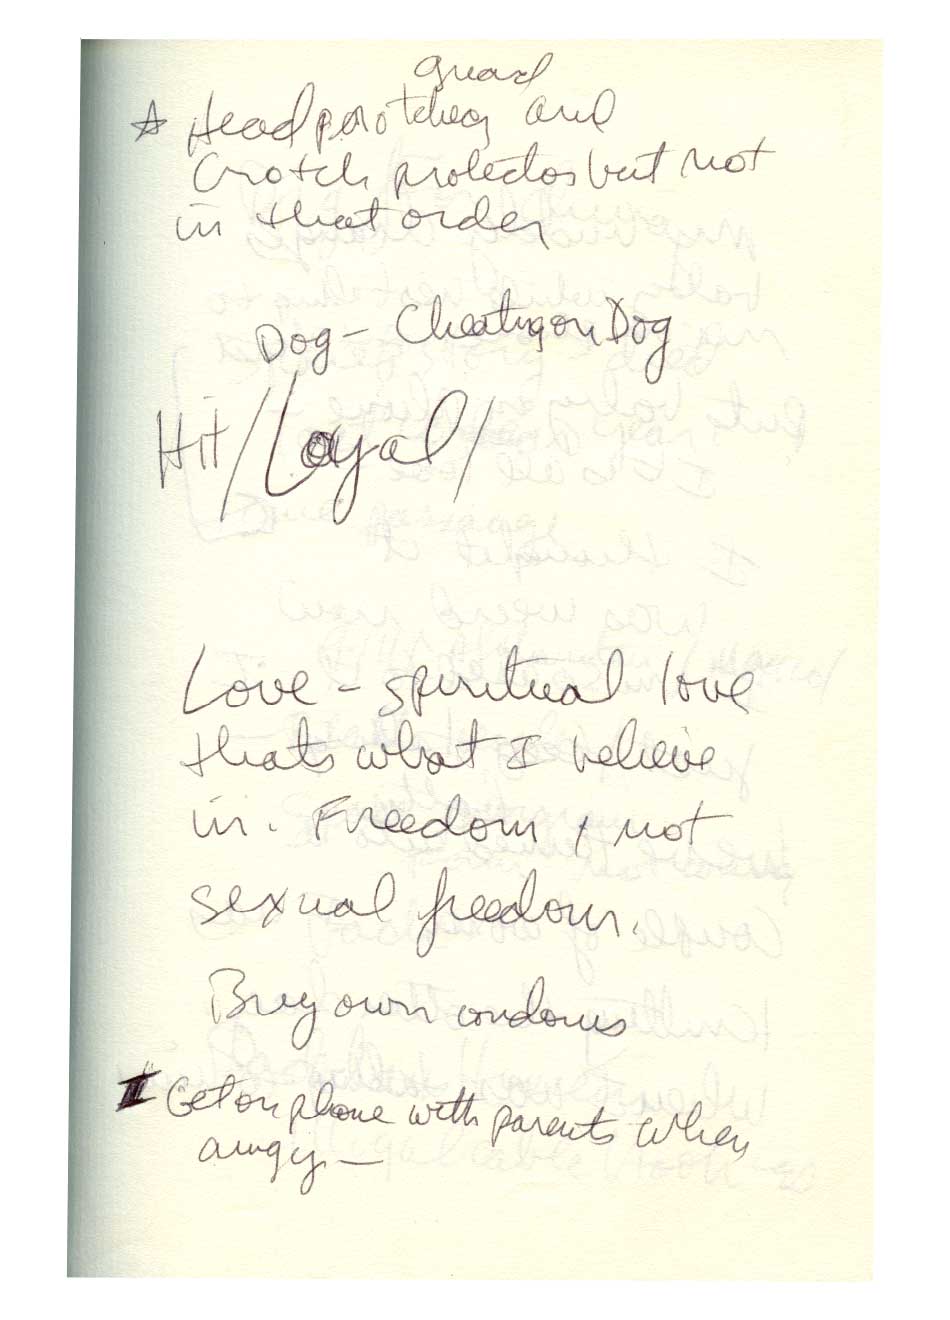 guard
☆ Head protchey and
Crotch protector but not
in that order
Dog - Cheating on Dog
Hit / Loyal /
Love - spiritual love
thats what I believe
in. Freedom & not
sexual freedom.
Buy own condoms
I Get on phone with parents when
angry —